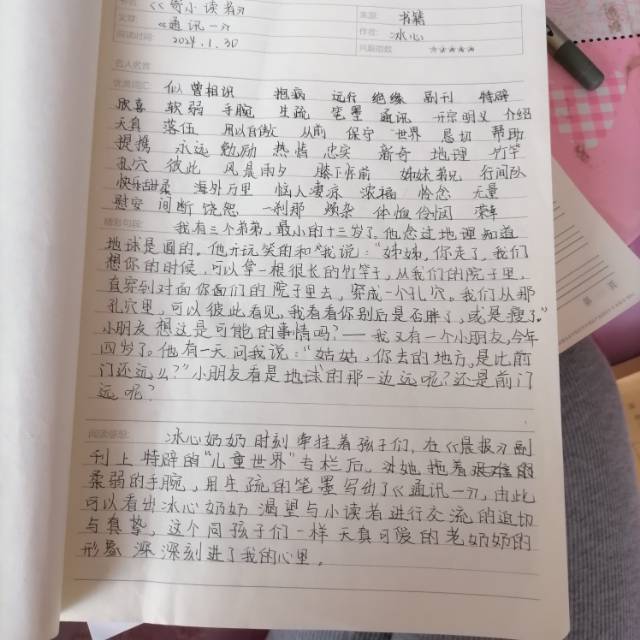 《寄小读者》
来源: 书籍
文章: 《通讯一》
作者: 冰心
阅读时间: 2024.1.30
兴趣指数 ★★★★★
名人名言
优美词汇: 似曾相识 抱病 远行 绝缘 副刊 特辟
欣喜 软弱 手腕 生疏 笔墨 通讯 开宗明义 介绍
天真 落伍 用以自傲 从前 保守 世界 恳切 帮助
提携 永远 勉励 热情 忠实 新奇 地理 竹竿
孔穴 彼此 风晨雨夕 膝下床前 姊妹弟兄 行间队
快乐甜柔 海外万里 恼人凄凉 浓福 怜念 无量
慰安 间断 饶恕 一刹那 烦杂 体恤
精彩句段: 我有三个弟弟,最小的十三岁了。他念过地理知道
地球是圆的。他开玩笑的和我说:“姊姊,你走了,我们
想你的时候,可以拿一根很长的竹竿子,从我们的院子里,
直穿到对面你们的院子里去,穿成一个孔穴。我们从那
孔穴里,可以彼此看见。我看看你别后是否胖了,或是瘦了。”
小朋友想这是可能的事情吗?——我又有一个小朋友,今年
四岁了。他有一天问我说:“姑姑,你去的地方,是比前
门还远么?”小朋友看是地球的那一边远呢?还是前门
远呢?
阅读感想: 冰心奶奶时刻牵挂着孩子们,在《晨报》副
刊上特辟的“儿童世界”专栏后,她拖着
柔弱的手腕,用生疏的笔墨写出了《通讯一》,由此
可以看出冰心奶奶渴望与小读者进行交流的迫切
与真挚,这个同孩子们一样天真可爱的老奶奶的
形象 深深刻进了我的心里。
第 页